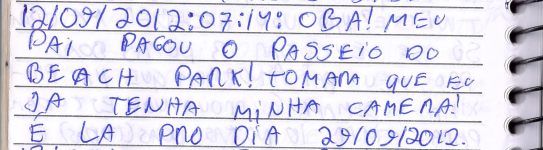 12/09/2012:07:14: OBA! MEU
PAI PAGOU O PASSEIO DO
BEACH PARK! TOMARA QUE EU
JA TENHA MINHA CAMERA!
É LA PRO DIA 29/09/2012.